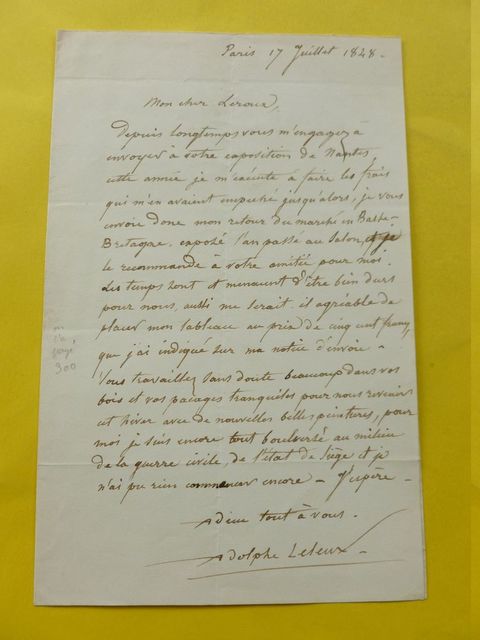 Paris 17 Juillet 1848 -
Mon cher Leroux,
Depuis longtemps vous m'engagez à
envoyer à votre exposition de Nantes,
cette année je m'exécute à faire les frais
qui m'en avaient empêché jusqu'alors, je vous
envoie donc mon retour du marché en Basse-
Bretagne, exposé l'an passé au Salon, et je
le recommande à votre amitié pour moi.
Les temps sont et menacent d'être bien durs
pour nous, aussi me serait il agréable de
placer mon tableau au prix de cinq cent francs,
que j'ai indiqué sur ma notice d'envoie -
Vous travaillez sans doute beaucoup dans vos
bois et vos pacages tranquiles pour nous revenir
cet hiver avec de nouvelles belles peintures, pour
moi je suis encore tout boulversé au milieu
de la guerre civile, de l'état de siège et je
n'ai pu rien commencer encore - J'espère -
Adieu tout à vous.
Adolphe Leleux -
300